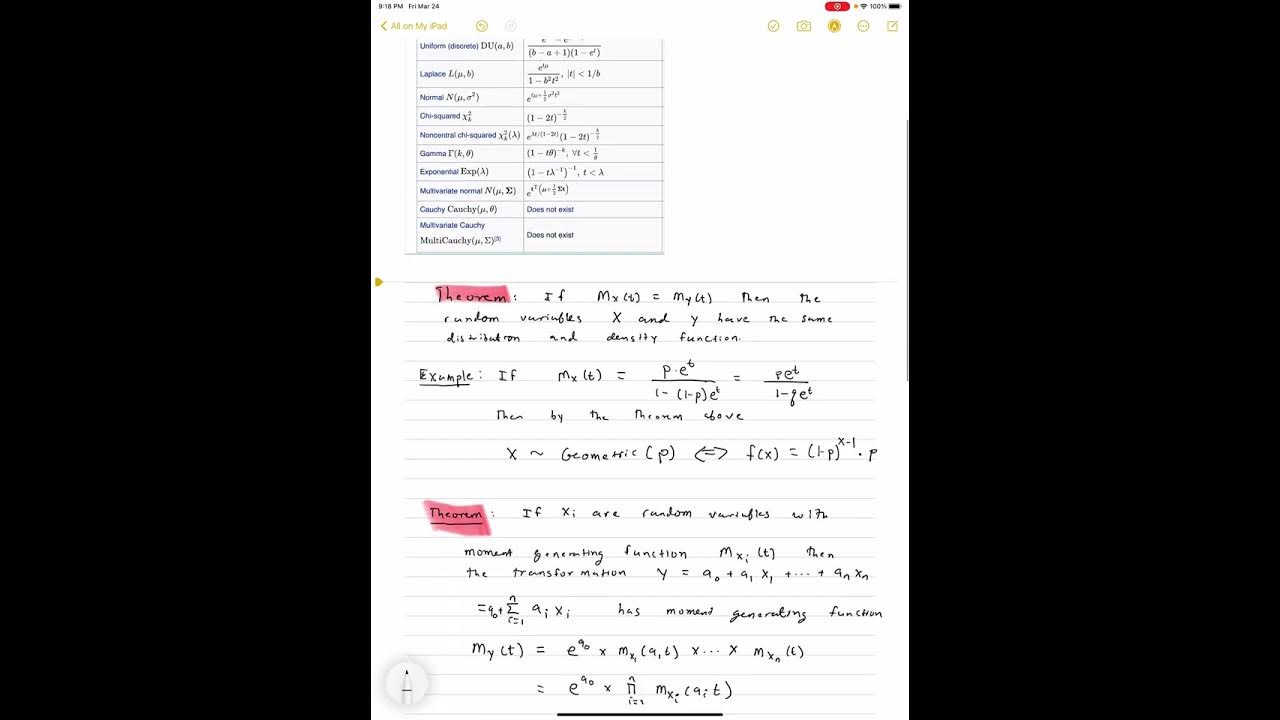 9:18 PM Fri Mar 24 100%
All on My iPad
Uniform (discrete) DU(a, b) (b − a + 1)(1 − e^t)
Laplace L(μ, b) e^{tμ} / (1 − b²t²), |t| < 1/b
Normal N(μ, σ²) e^{tμ + ½σ²t²}
Chi-squared χ²_k (1 − 2t)^{−k/2}
Noncentral chi-squared χ²_k(λ) e^{λt/(1−2t)}(1 − 2t)^{−k/2}
Gamma Γ(k, θ) (1 − tθ)^{−k}, ∀t < 1/θ
Exponential Exp(λ) (1 − tλ^{−1})^{−1}, t < λ
Multivariate normal N(μ, Σ) e^{t^T(μ + ½Σt)}
Cauchy Cauchy(μ, θ) Does not exist
Multivariate Cauchy
MultiCauchy(μ, Σ)[3] Does not exist
Theorem: If M_X(t) = M_Y(t) then the
random variables X and Y have the same
distribution and density function.
Example: If m_X(t) = p·e^t / (1 − (1−p)e^t) = pe^t / (1 − qe^t)
Then by the theorem above
X ~ Geometric(p) ⟺ f(x) = (1−p)^{x−1} · p
Theorem: If X_i are random variables with
moment generating function M_{X_i}(t) then
the transformation Y = a_0 + a_1 X_1 + ··· + a_n X_n
= a_0 + Σ_{i=1}^{n} a_i X_i has moment generating function
M_Y(t) = e^{a_0} × m_{X_1}(a_1 t) × ··· × m_{X_n}(t)
= e^{a_0} × Π_{i=1}^{n} m_{X_i}(a_i t)